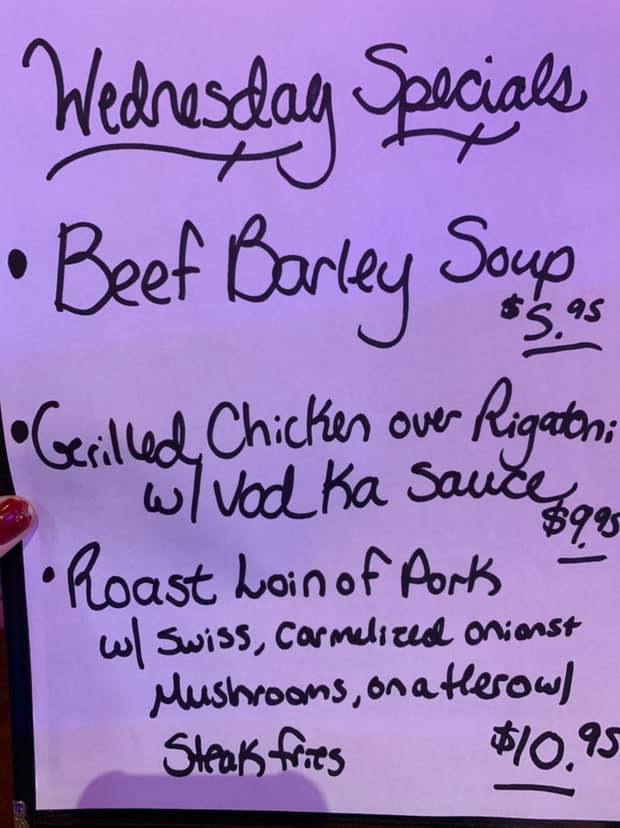 Wednesday Specials
• Beef Barley Soup
$5.95
• Grilled Chicken over Rigatoni
w/ Vodka Sauce
$9.95
• Roast Loin of Pork
w/ Swiss, Carmelized onions +
Mushrooms, on a Hero w/
Steak fries $10.95